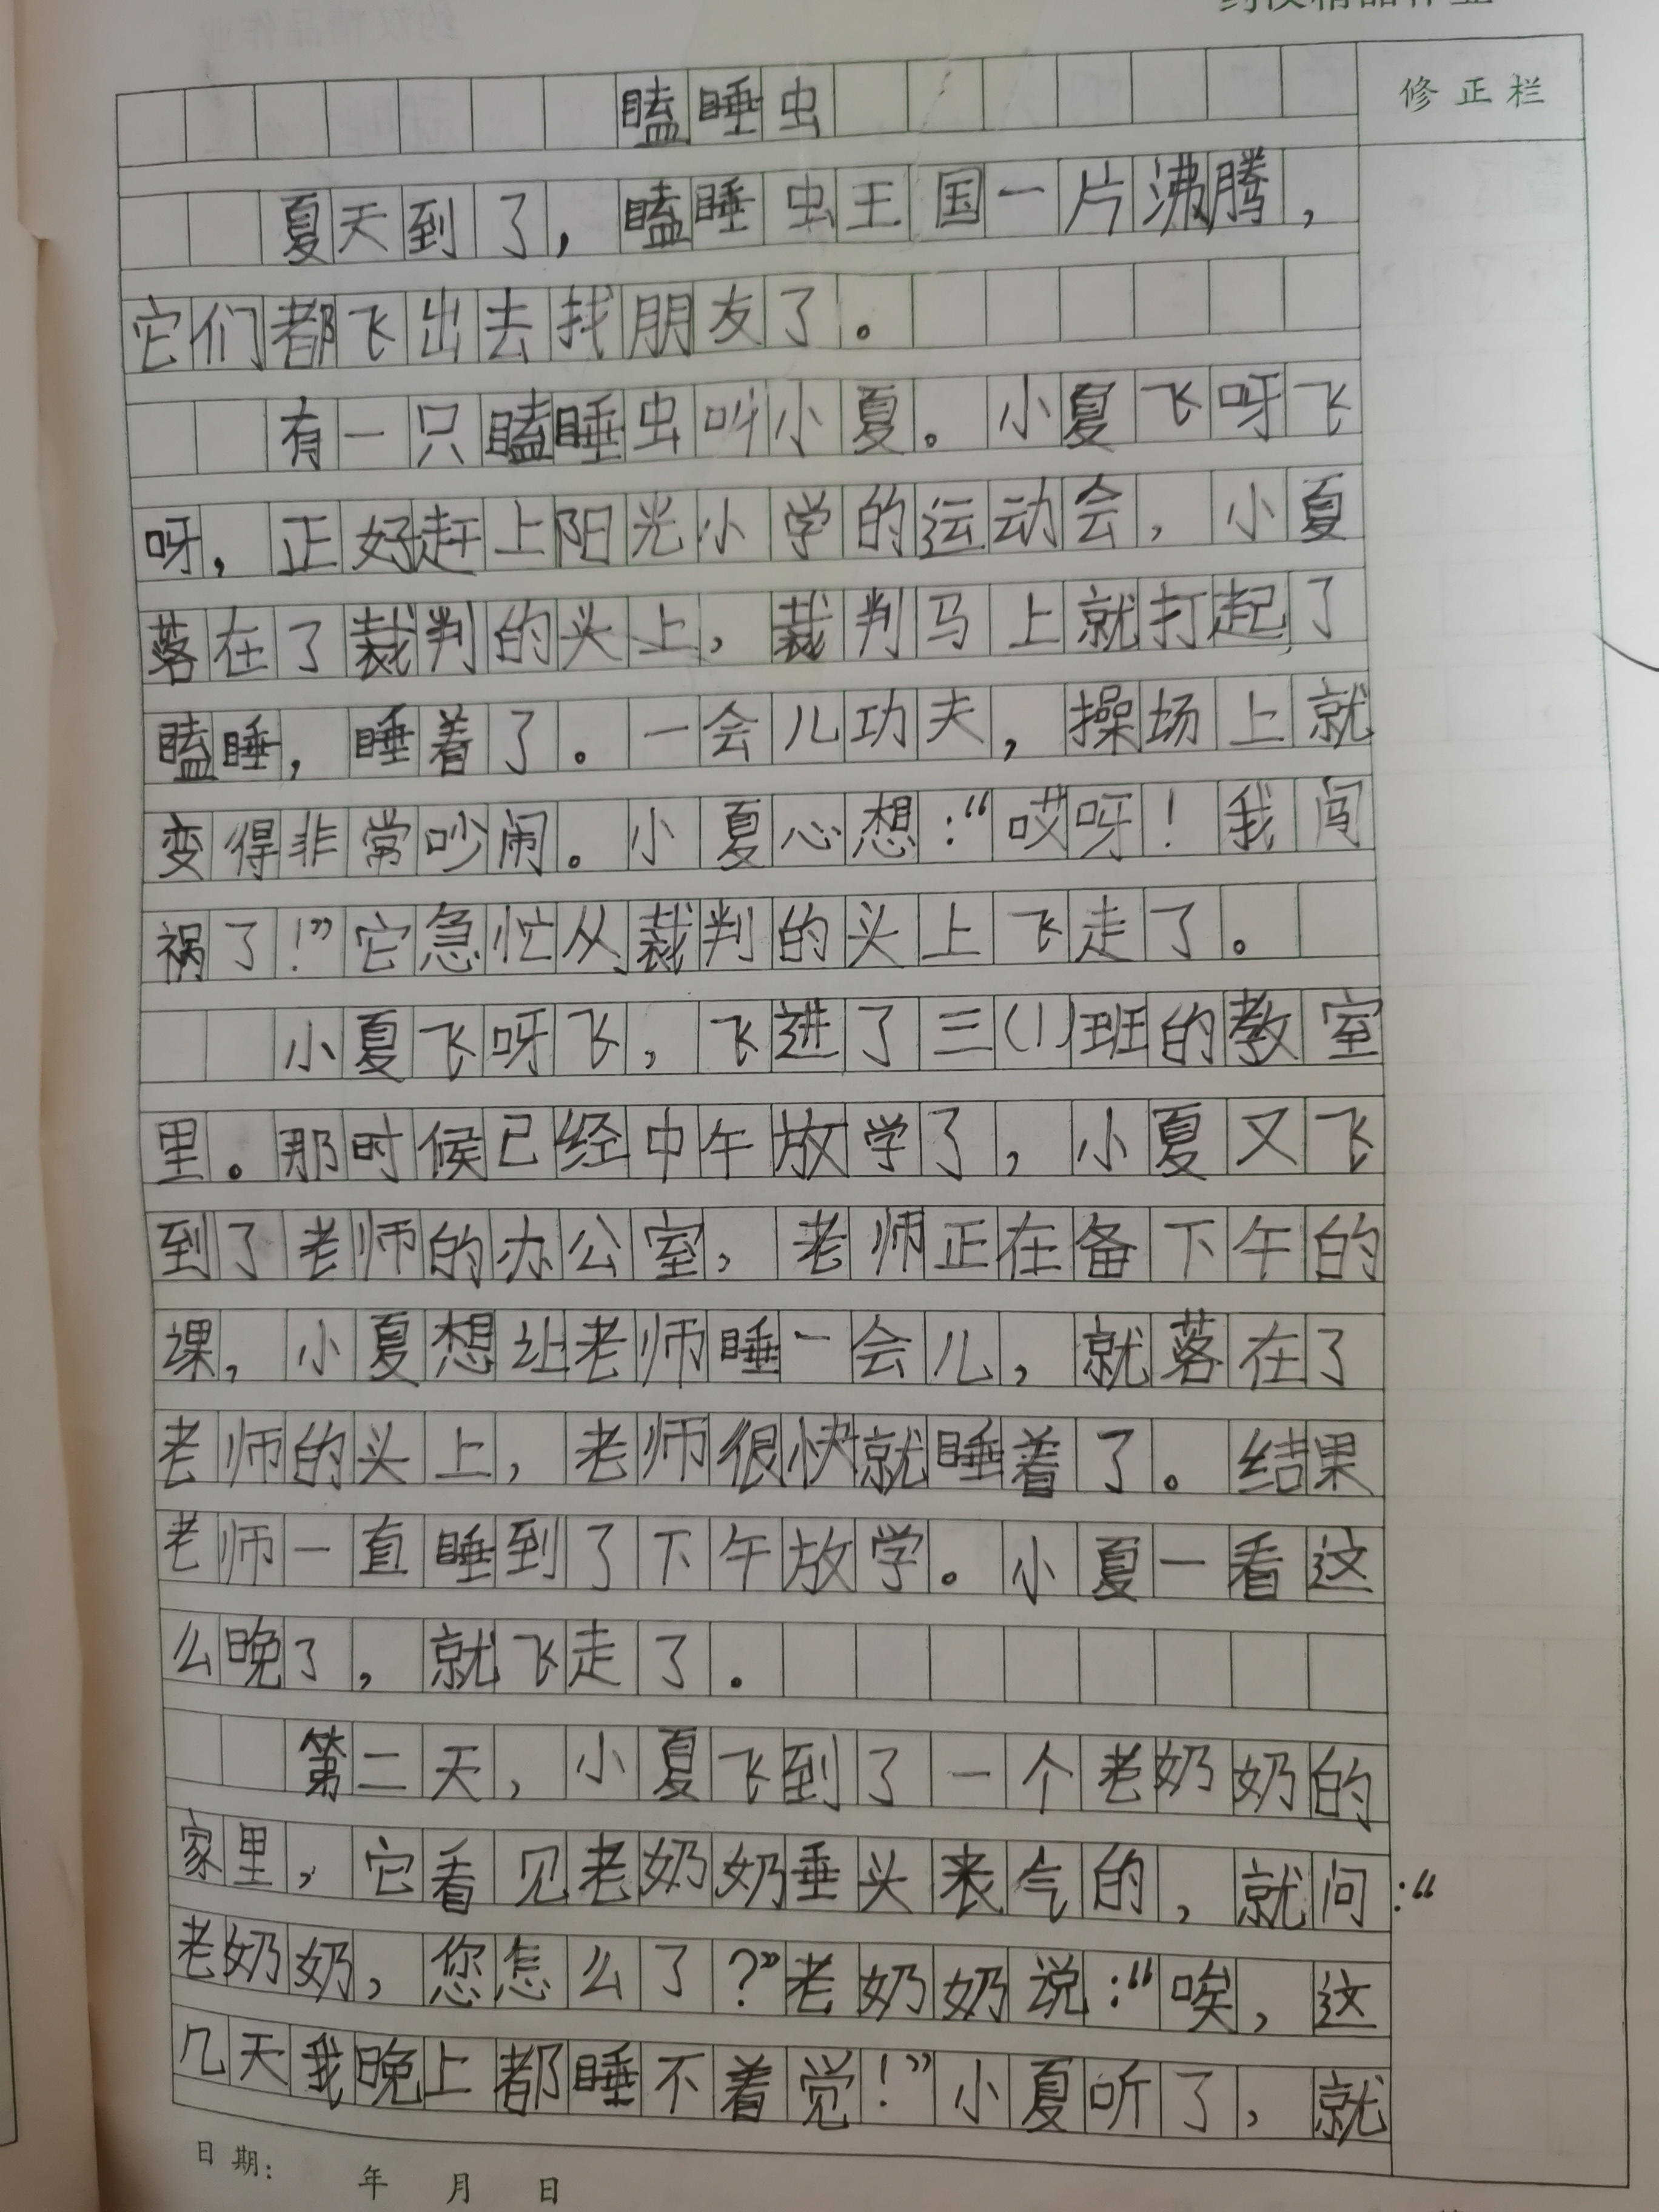 瞌睡虫
修正栏
夏天到了，瞌睡虫王国一片沸腾，
它们都飞出去找朋友了。
有一只瞌睡虫叫小夏。小夏飞呀飞
呀，正好赶上阳光小学的运动会，小夏
落在了裁判的头上，裁判马上就打起了
瞌睡，睡着了。一会儿功夫，操场上就
变得非常吵闹。小夏心想：“哎呀！我闯
祸了！”它急忙从裁判的头上飞走了。
小夏飞呀飞，飞进了三(1)班的教室
里。那时候已经中午放学了，小夏又飞
到了老师的办公室，老师正在备下午的
课，小夏想让老师睡一会儿，就落在了
老师的头上，老师很快就睡着了。结果
老师一直睡到了下午放学。小夏一看这
么晚了，就飞走了。
第二天，小夏飞到了一个老奶奶的
家里，它看见老奶奶垂头丧气的，就问：“
老奶奶，您怎么了？”老奶奶说：“唉，这
几天我晚上都睡不着觉！”小夏听了，就
日期： 年 月 日